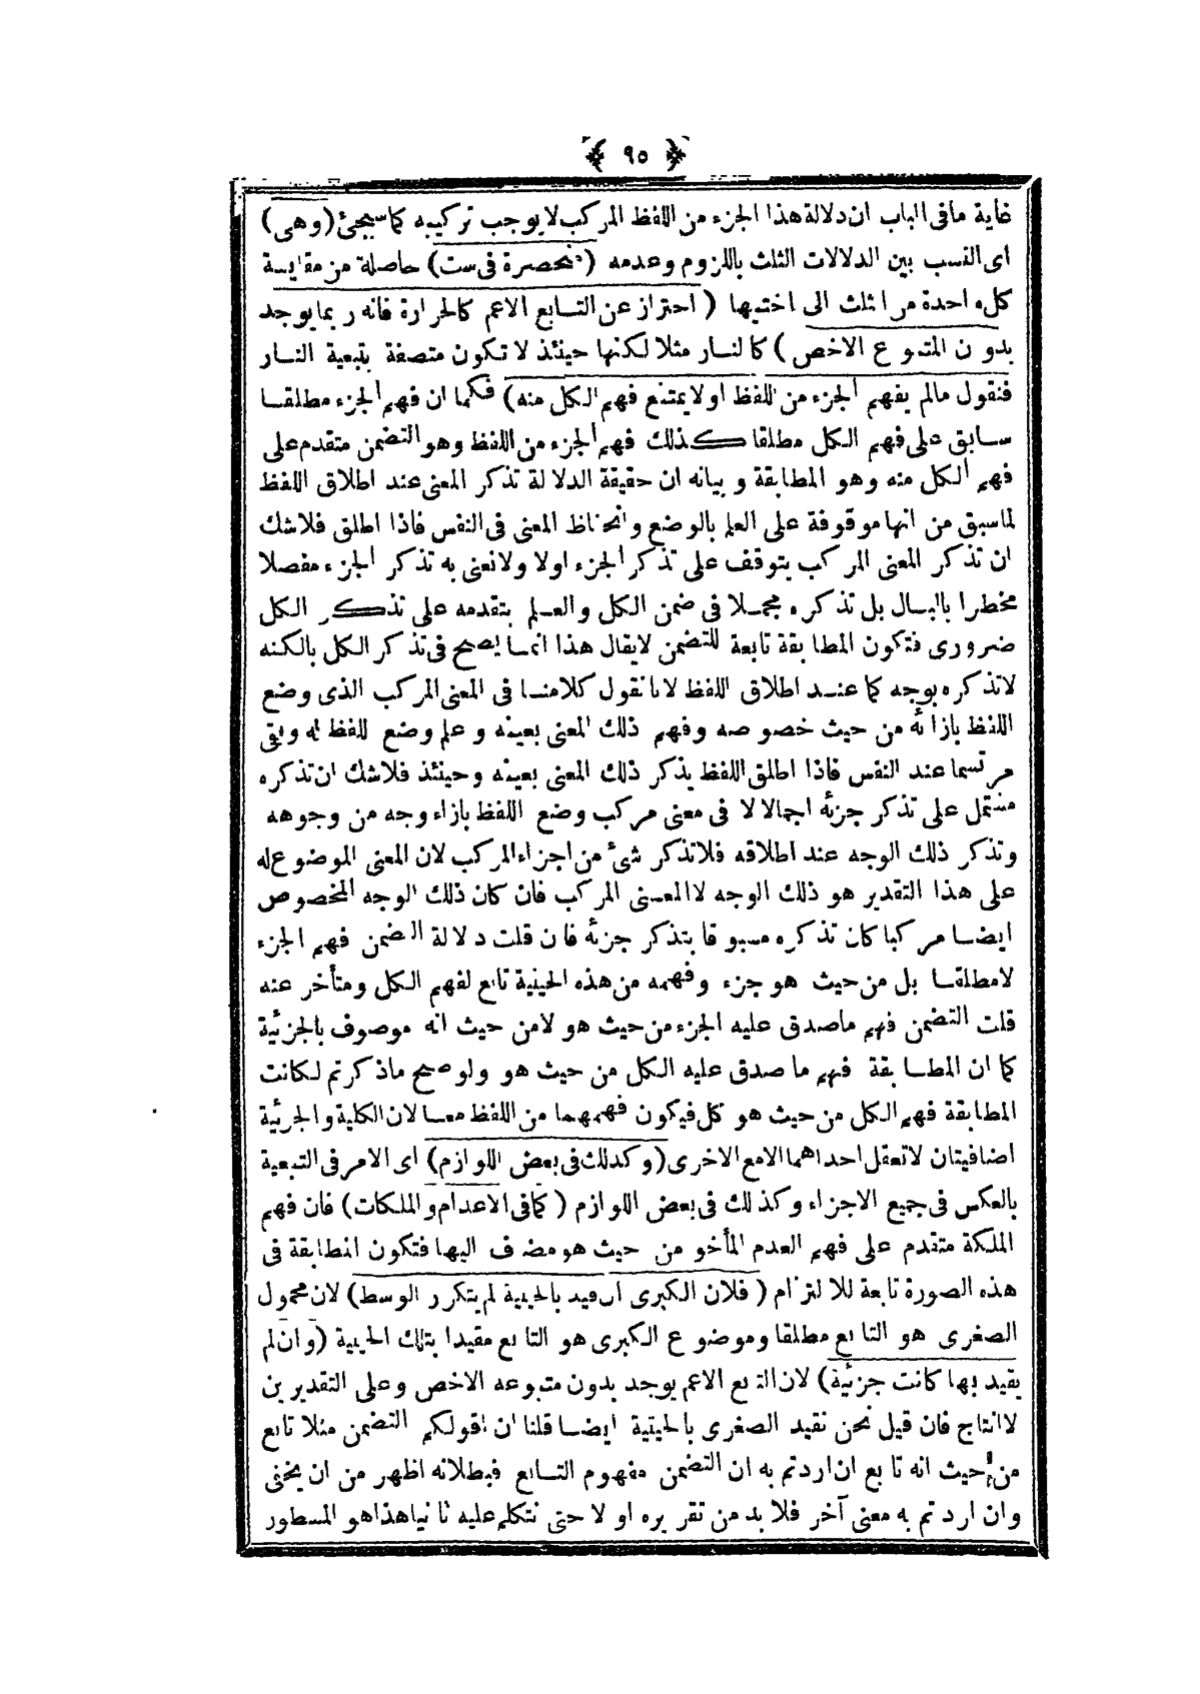 ﴿ ٩٥ ﴾
غاية مافى الباب ان دلالة هذا الجزء من اللفظ المركب لا يوجب تركيبه كما سيجئ (وهى)
اى النسب بين الدلالات الثلث باللزوم وعدمه (منحصرة فى ست) حاصلة من مقايسة
كل واحدة من الثلث الى اختيها (احتراز عن التابع الاعم كالحرارة فانه ربما يوجد
بدون المتبوع الاخص) كالنار مثلا لكنها حينئذ لا تكون متصفة بتبعية النار
فنقول مالم يفهم الجزء من اللفظ اولا يمتنع فهم الكل منه) فكما ان فهم الجزء مطلقا
سابق على فهم الكل مطلقا كذلك فهم الجزء من اللفظ وهو التضمن متقدم على
فهم الكل منه وهو المطابقة وبيانه ان حقيقة الدلالة تذكر المعنى عند اطلاق اللفظ
لماسبق من انها موقوفة على العلم بالوضع وانحفاظ المعنى فى النفس فاذا اطلق فلاشك
ان تذكر المعنى المركب يتوقف على تذكر الجزء اولا ولا نعنى به تذكر الجزء مفصلا
مخطرا بالبال بل تذكره مجملا فى ضمن الكل والعلم بتقدمه على تذكر الكل
ضرورى فتكون المطابقة تابعة للتضمن لايقال هذا انما يصح فى تذكر الكل بالكنه
لاتذكره بوجه كما عند اطلاق اللفظ لانا نقول كلامنا فى المعنى المركب الذى وضع
اللفظ بازائه من حيث خصوصه وفهم ذلك المعنى بعينه وعلم وضع اللفظ له وبقى
مرتسما عند النفس فاذا اطلق اللفظ يذكر ذلك المعنى بعينه وحينئذ فلاشك ان تذكره
مشتمل على تذكر جزئه اجمالا لا فى معنى مركب وضع اللفظ بازاء وجه من وجوهه
وتذكر ذلك الوجه عند اطلاقه فلاتذكر شئ من اجزاء المركب لان المعنى الموضوع له
على هذا التقدير هو ذلك الوجه لا المعنى المركب فان كان ذلك الوجه المخصوص
ايضا مركبا كان تذكره مسبوقا بتذكر جزئه فان قلت دلالة التضمن فهم الجزء
لامطلقا بل من حيث هو جزء وفهمه من هذه الحيثية تابع لفهم الكل ومتأخر عنه
قلت التضمن فهم ماصدق عليه الجزء من حيث هو لامن حيث انه موصوف بالجزئية
كما ان المطابقة فهم ما صدق عليه الكل من حيث هو ولو صح ماذكرتم لكانت
المطابقة فهم الكل من حيث هو كل فيكون فهمهما من اللفظ معا لان الكلية والجزئية
اضافيتان لاتعقل احداهما الامع الاخرى (وكذلك فى بعض اللوازم) اى الامر فى التبعية
بالعكس فى جميع الاجزاء وكذلك فى بعض اللوازم (كمافى الاعدام والملكات) فان فهم
الملكة متقدم على فهم العدم المأخوذ من حيث هو مضاف اليها فتكون المطابقة فى
هذه الصورة تابعة للالتزام (فلان الكبرى ان قيد بالحيثية لم يتكرر الوسط) لان محمول
الصغرى هو التابع مطلقا وموضوع الكبرى هو التابع مقيدا بتلك الحيثية (وان لم
يقيد بها كانت جزئية) لان التابع الاعم يوجد بدون متبوعه الاخص وعلى التقديرين
لاانتاج فان قيل نحن نقيد الصغرى بالحيثية ايضا قلنا ان قولكم التضمن مثلا تابع
من حيث انه تابع ان اردتم به ان التضمن مفهوم التابع فبطلانه اظهر من ان يخفى
وان اردتم به معنى آخر فلا بد من تقريره اولا حتى نتكلم عليه ثانيا هذا هو المسطور